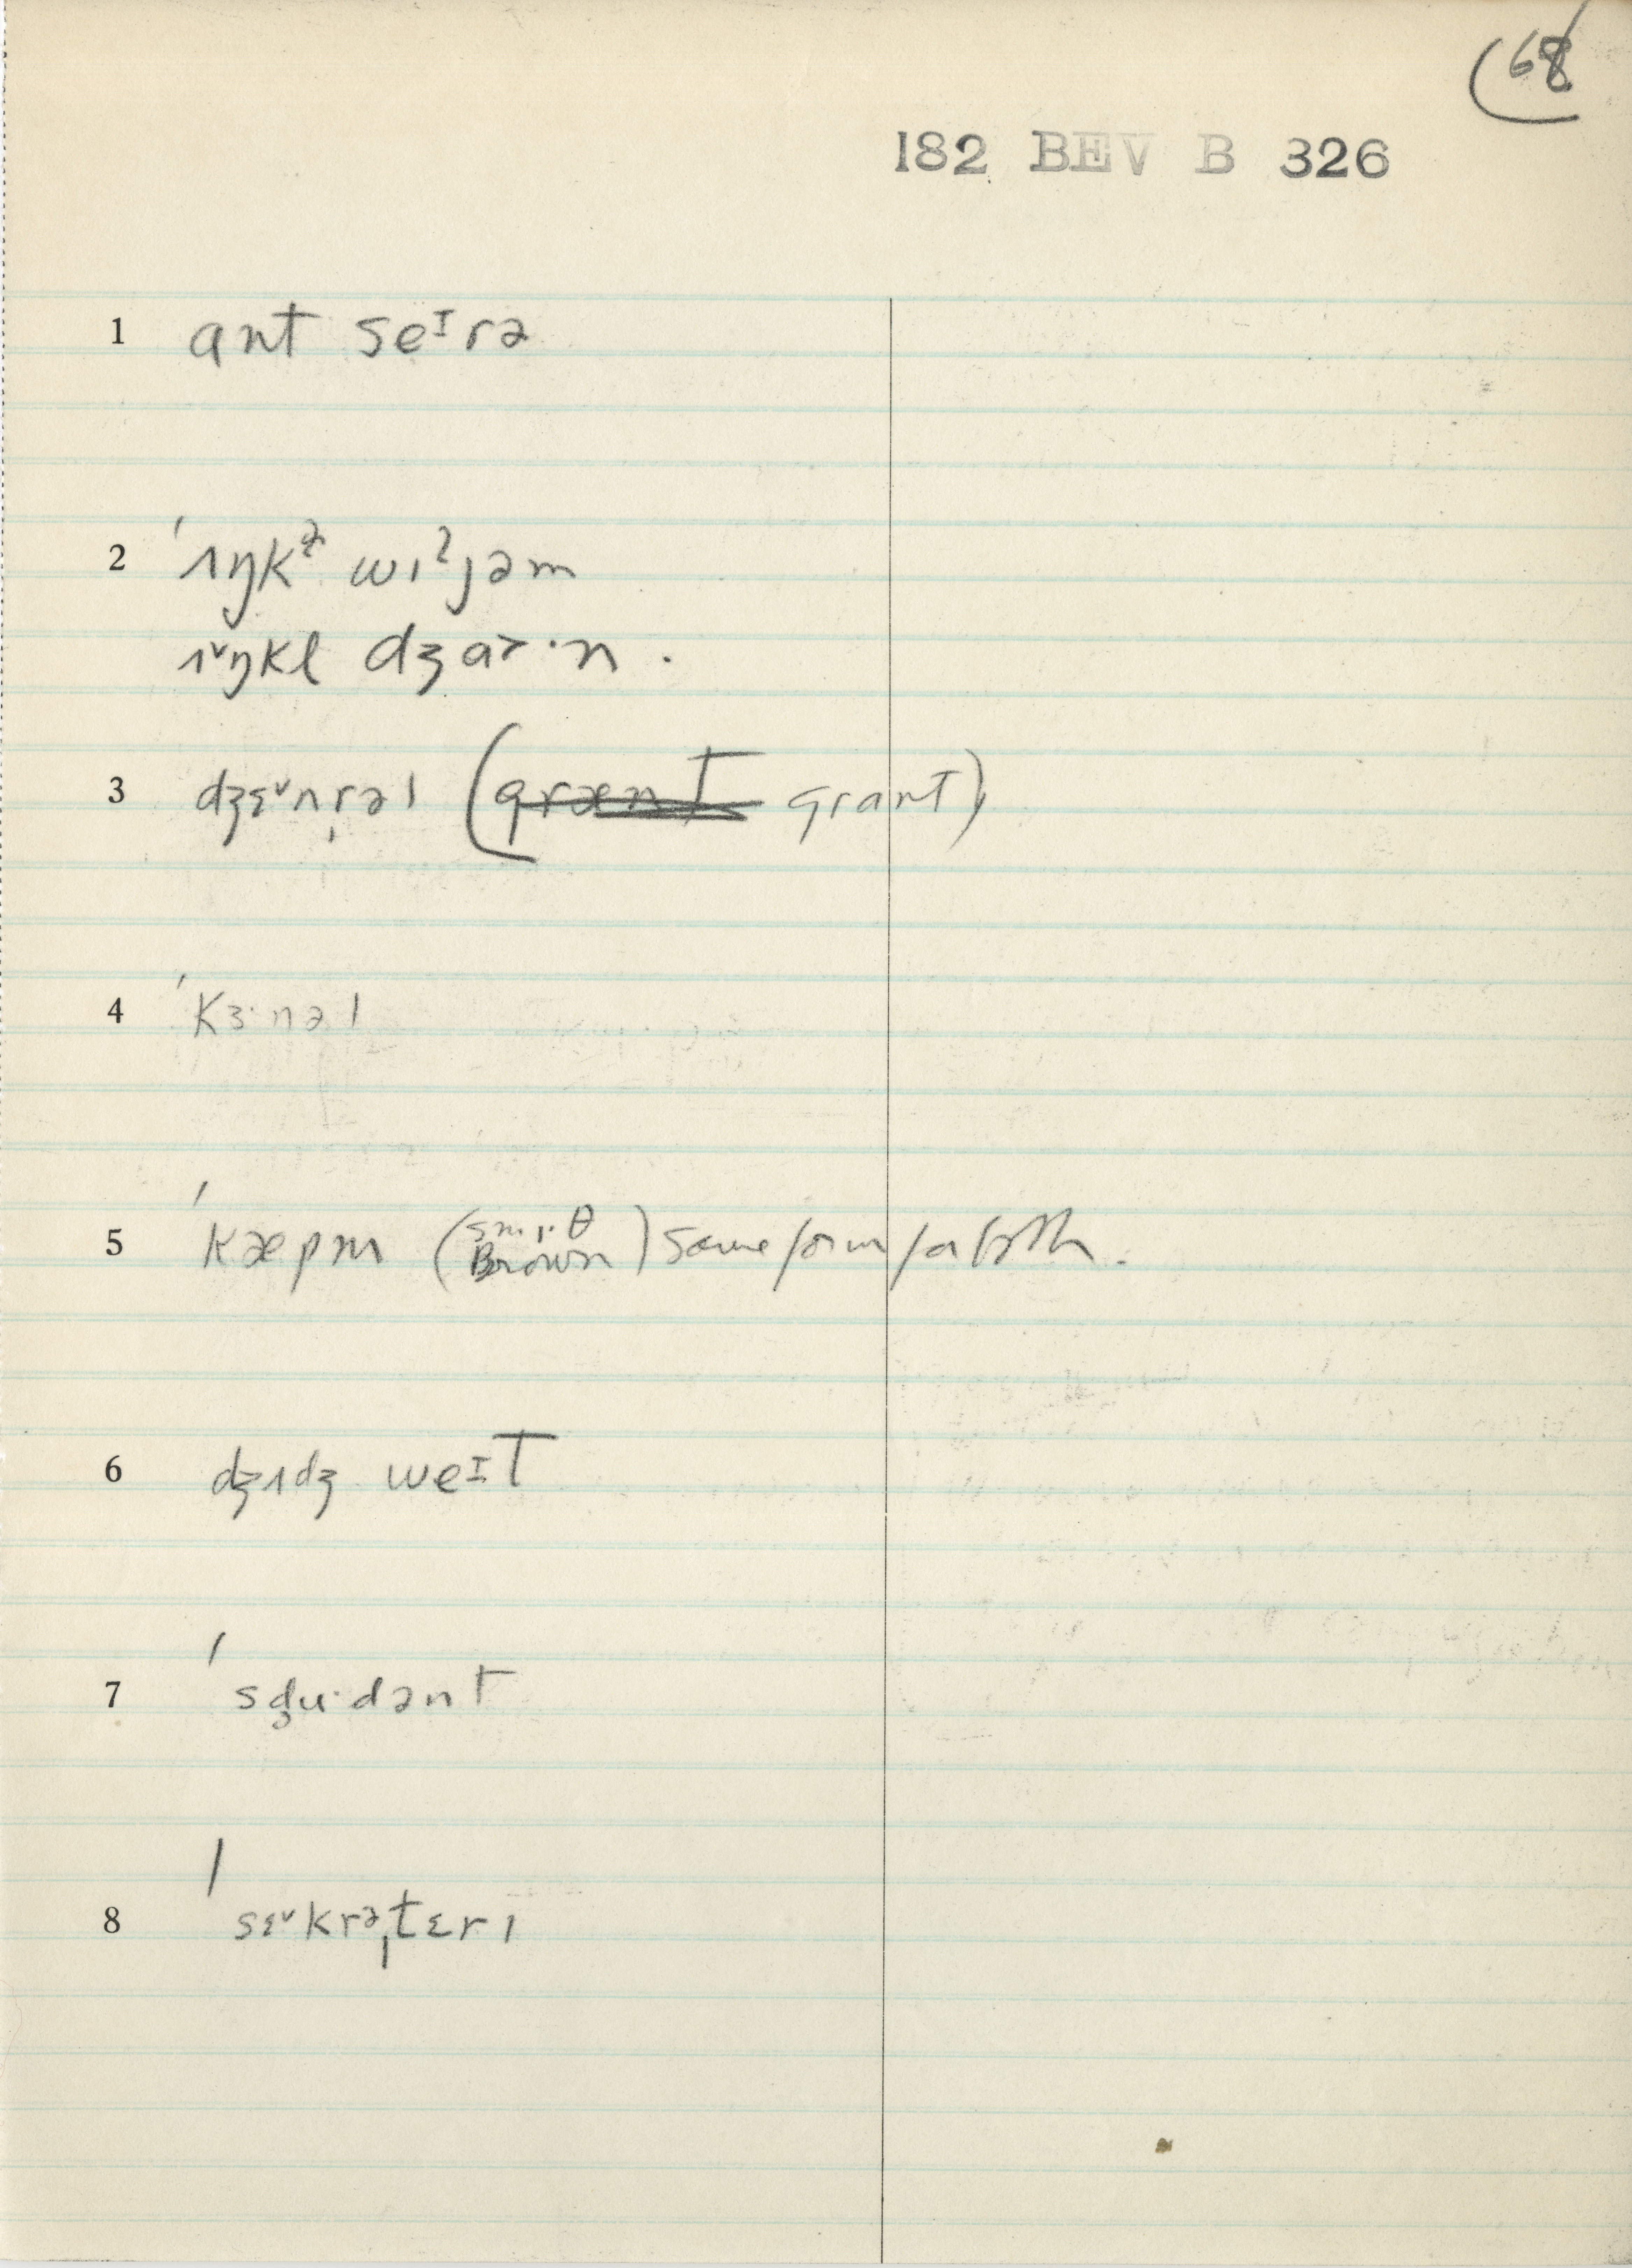 (68
182 BEV B 326
1 ant seᶦrə
2 ˈɪŋkᵊ wɪˀjəm
ɪ˅ŋkl dʒa˃·n .
3 dʒɛ˅nr̩əl (grænt grant)
4 ˈkɜ·nəl
5 ˈkæpm (smɪθ
Brown) same form for both.
6 dʒɪdʒ weɪt
7 ˈsd̥u·dənt
8 ˈsɛ˅krəˌtɛrɪ